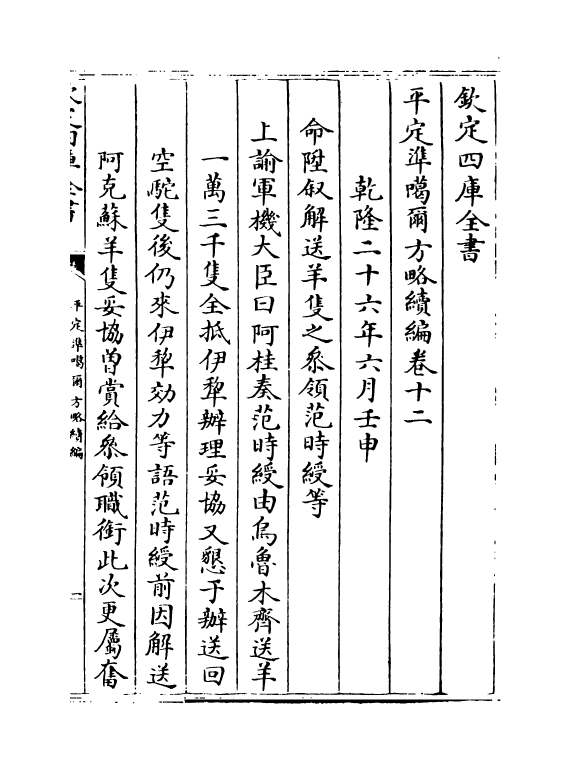 欽定四庫全書
平定準噶爾方略續編卷十二
乾隆二十六年六月壬申
命陞叙解送羊隻之叅領范時綬等
上諭軍機大臣曰阿桂奏范時綬由烏魯木齊送羊
一萬三千隻全抵伊犂辦理妥協又懇于辦送回
空駝隻後仍來伊犂効力等語范時綬前因解送
阿克蘇羊隻妥協曽賞給叅領職銜此次更屬奮
欽定四庫全書
平定準噶爾方略續編
一